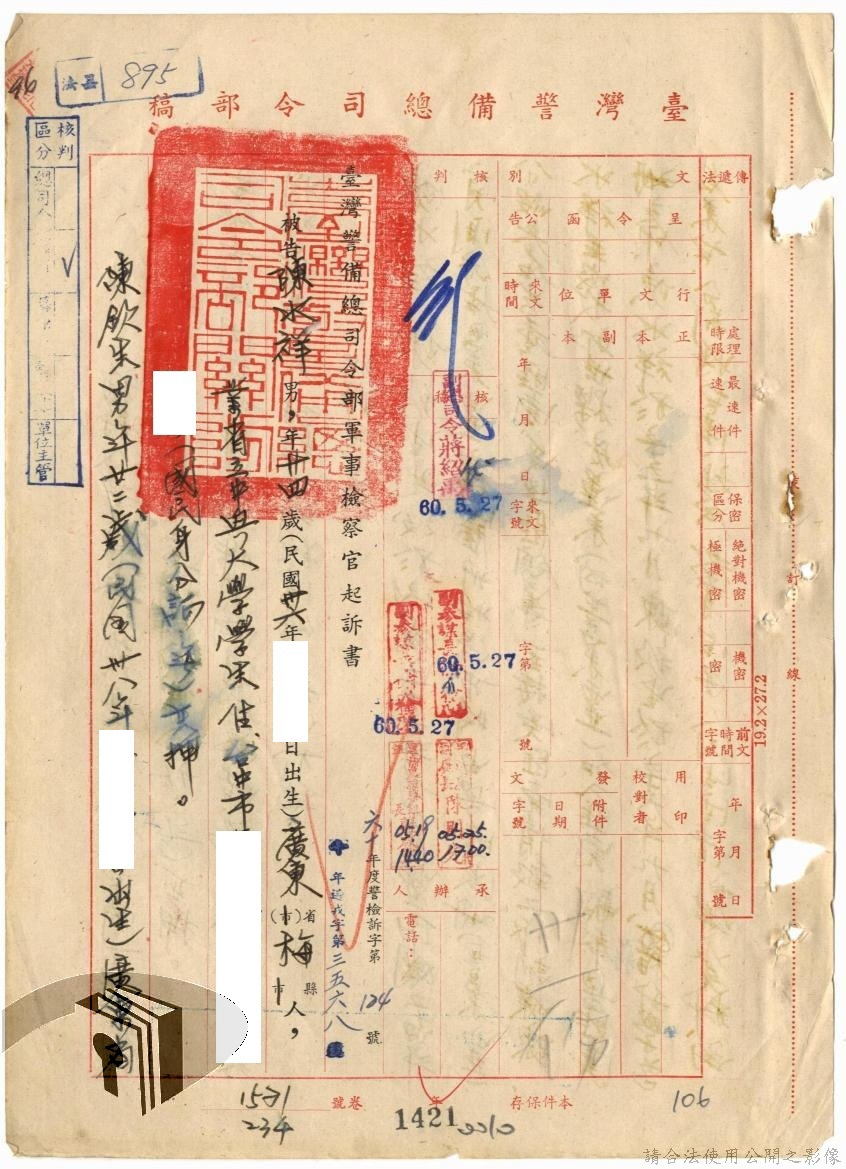 臺灣警備總司令部稿
法 895
核判區分
總司人
單位主管
傳遞法
處理時限
最速件
速件
保密區分
絕對機密
極機密
機密
密
前文時間字號
年月日
字第 號
文別
呈
令
函
公告
行文單位
正本
副本
來文時間
年月日
來文字號
字第 號
用印
校對者
發文
附件
日期
字號
核判
核稿
副總司令蔣紹禹
60.5.27
60.5.27
60.5.27
05.25.
1700.
05.19
1440
承辦人
電話：
六十年度警檢訴字第 124 號
年 字第三五六八號
臺灣警備總司令部軍事檢察官起訴書
被告陳水祥 男，年廿四歲（民國卅六年 日出生）廣東省（市）梅縣市人，
業省立中興大學學生住台中市
（國民身分證 ）在押。
陳欽生男年廿二歲（民國卅八年 出生）廣東省
裝訂線
19.2×27.2
本件保存 年
卷號
1571
234
1421
0010
106
請合法使用公開之影像